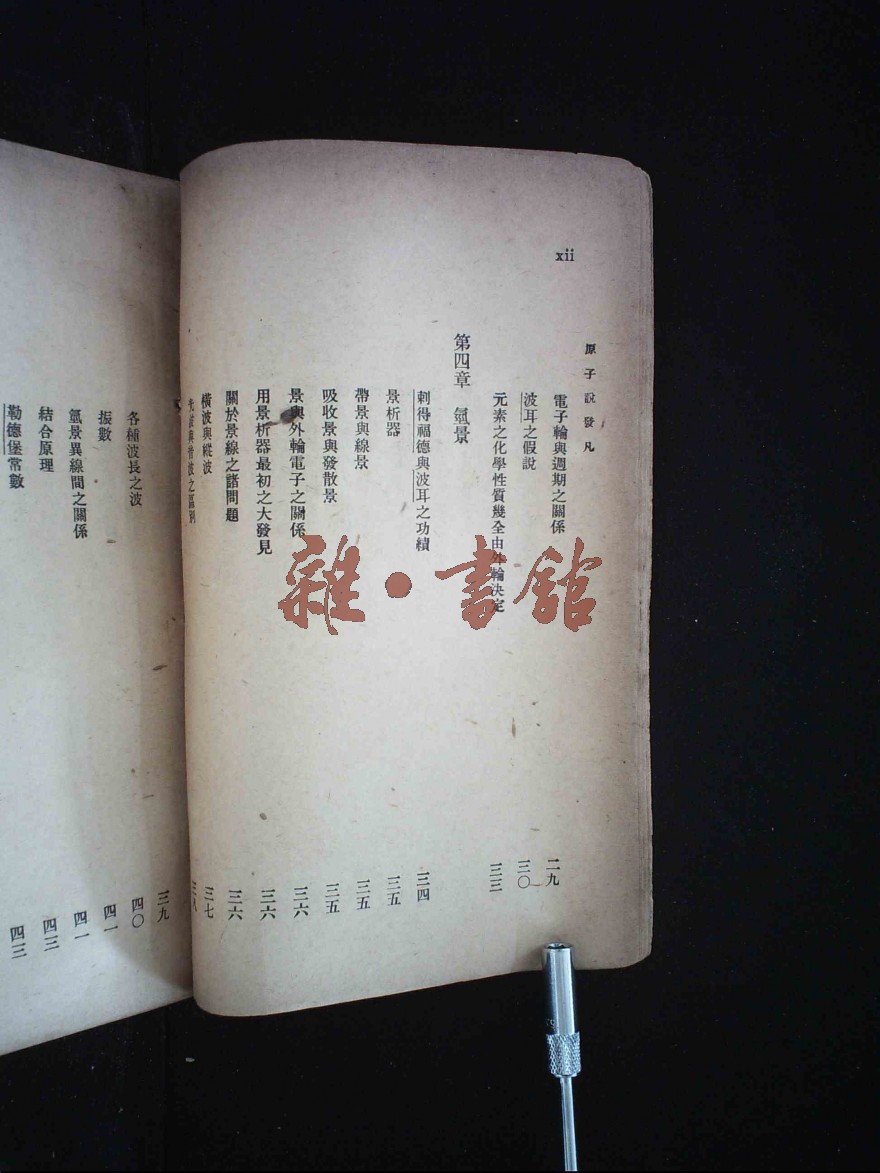 xii
原子說發凡
電子輪與週期之關係 二九
波耳之假說 三〇
元素之化學性質幾全由外輪決定 三三
第四章 氫景
剌得福德與波耳之功績 三四
景析器 三五
帶景與線景 三五
吸收景與發散景 三五
景與外輪電子之關係 三六
用景析器最初之大發見 三六
關於景線之諸問題 三六
橫波與縱波 三七
光波與音波之區別 三八
三九
各種波長之波 四〇
振數 四一
氫景異線間之關係 四一
結合原理 四三
勒德堡常數 四三
雜·書館